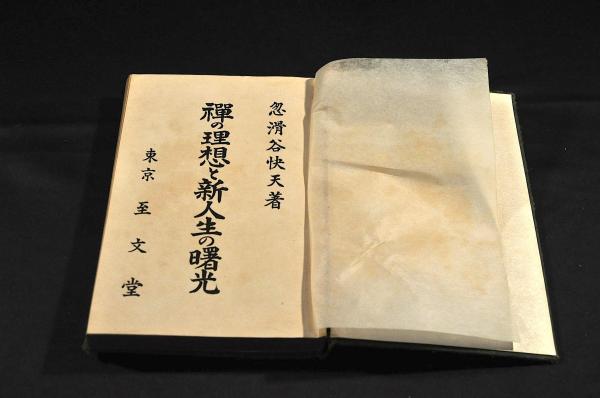 忽滑谷快天著
禪の理想と新人生の曙光
東京 至文堂